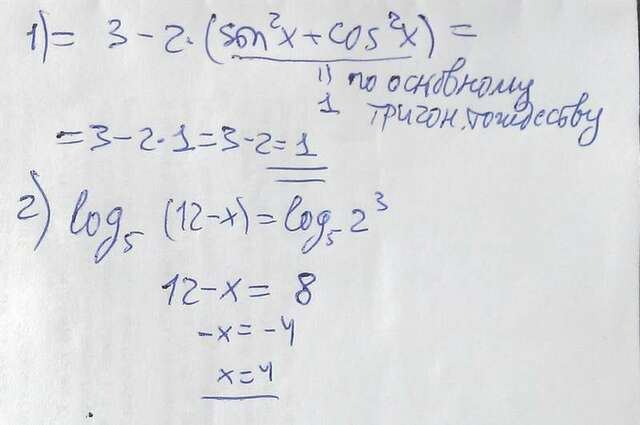 1) = 3 - 2 · (sin²x + cos²x) =
|| по основному
1 тригон. тождеству
= 3 - 2 · 1 = 3 - 2 = 1
2) log₅ (12 - x) = log₅ 2³
12 - x = 8
-x = -4
x = 4